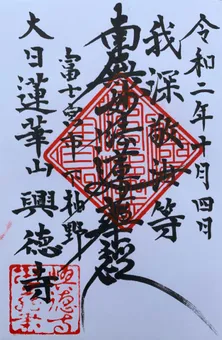 令和二年十月四日
我深敬汝等
南無妙法蓮華経
富士宮市 柚野
大日蓮華山 興徳寺
興徳寺